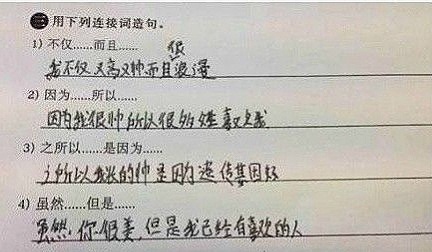 三 用下列连接词造句。
1) 不仅……而且……
很
我不仅又高又帅而且浪漫
2) 因为……所以……
因为我很帅所以很多人喜欢我
3) 之所以……是因为……
之所以我长的帅是因为遗传基因好
4) 虽然……但是……
虽然你很美,但是我已经有喜欢的人